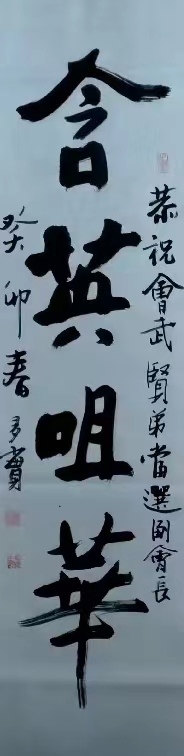 恭祝會武賢弟當選副會長
含英咀華
癸卯春